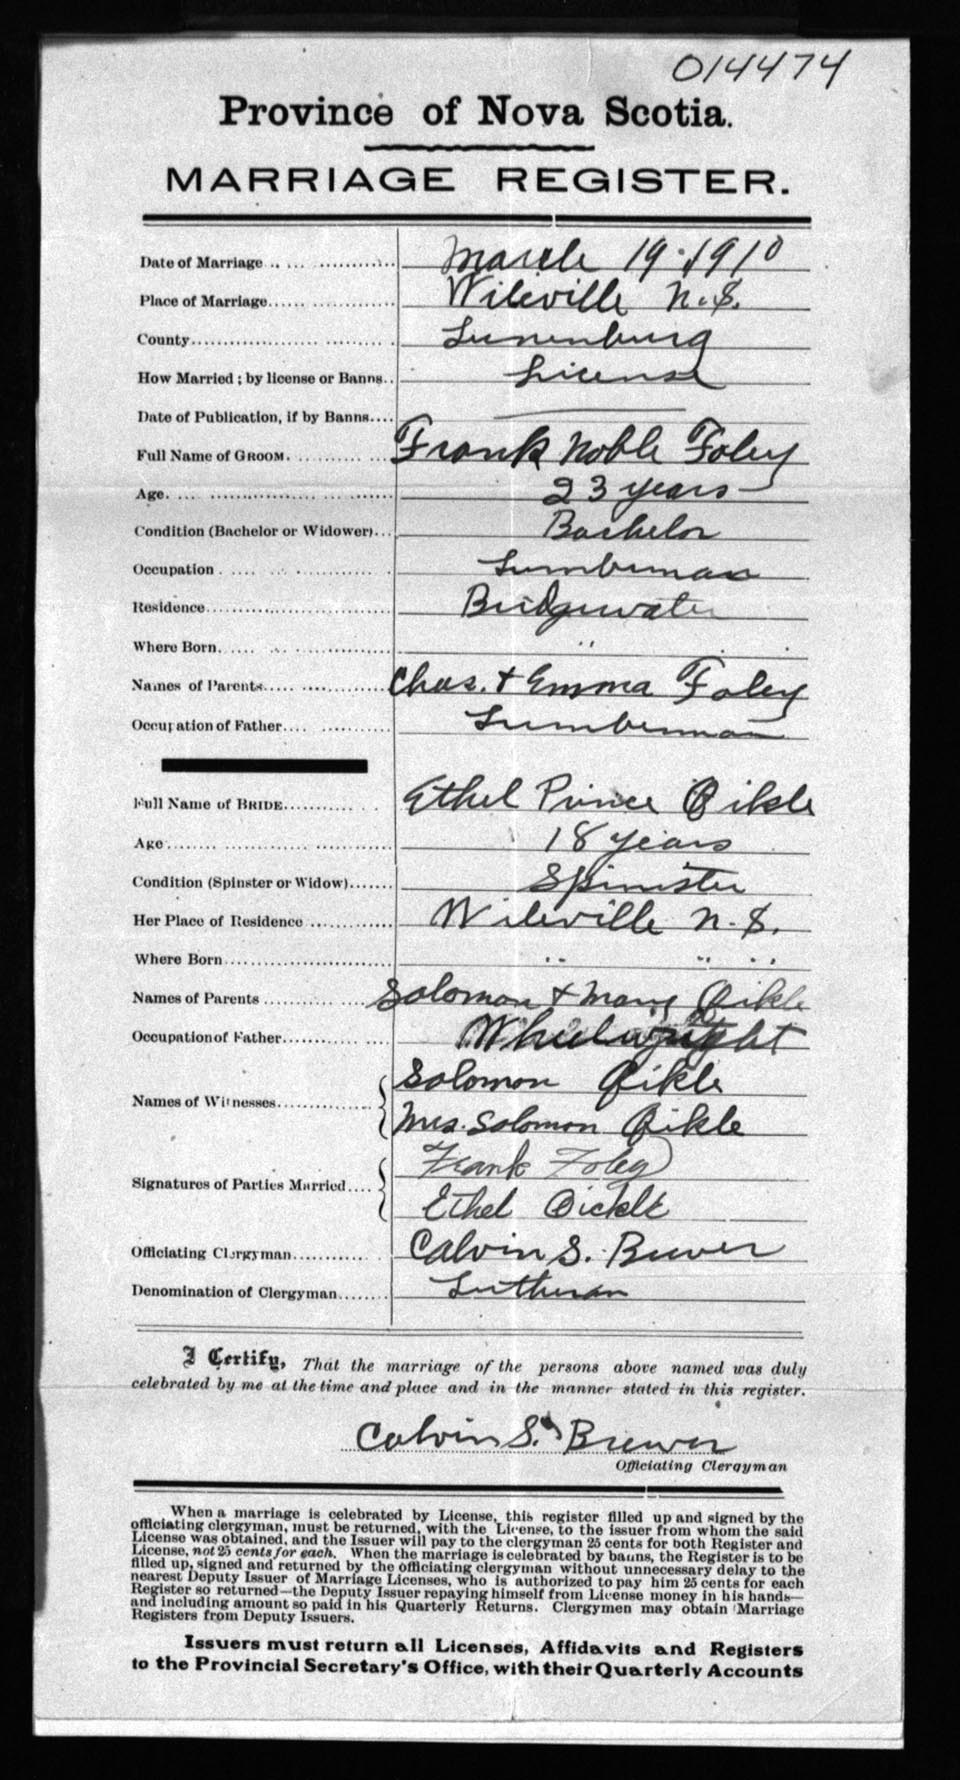 014474
Province of Nova Scotia.
MARRIAGE REGISTER.
Date of Marriage March 19. 1910
Place of Marriage Wileville N.S.
County Lunenburg
How Married; by license or Banns. License
Date of Publication, if by Banns
Full Name of GROOM Frank Noble Foley
Age 23 years
Condition (Bachelor or Widower) Bachelor
Occupation Lumberman
Residence Bridgewater
Where Born "
Names of Parents Chas. + Emma Foley
Occupation of Father Lumberman
Full Name of BRIDE Ethel Prince Pikle
Age 18 years
Condition (Spinster or Widow) Spinster
Her Place of Residence Wileville N.S.
Where Born " " "
Names of Parents Solomon + Mary Pikle
Occupation of Father Wheelwright
Names of Witnesses Solomon Pikle
Mrs. Solomon Pikle
Signatures of Parties Married Frank Foley
Ethel Pickle
Officiating Clergyman Calvin S. Brewer
Denomination of Clergyman Lutheran
I Certify, That the marriage of the persons above named was duly
celebrated by me at the time and place and in the manner stated in this register.
Calvin S. Brewer
Officiating Clergyman
When a marriage is celebrated by License, this register filled up and signed by the
officiating clergyman, must be returned, with the License, to the issuer from whom the said
License was obtained, and the Issuer will pay to the clergyman 25 cents for both Register and
License, not 25 cents for each. When the marriage is celebrated by banns, the Register is to be
filled up, signed and returned by the officiating clergyman without unnecessary delay to the
nearest Deputy Issuer of Marriage Licenses, who is authorized to pay him 25 cents for each
Register so returned—the Deputy Issuer repaying himself from License money in his hands—
and including amount so paid in his Quarterly Returns. Clergymen may obtain Marriage
Registers from Deputy Issuers.
Issuers must return all Licenses, Affidavits and Registers
to the Provincial Secretary's Office, with their Quarterly Accounts